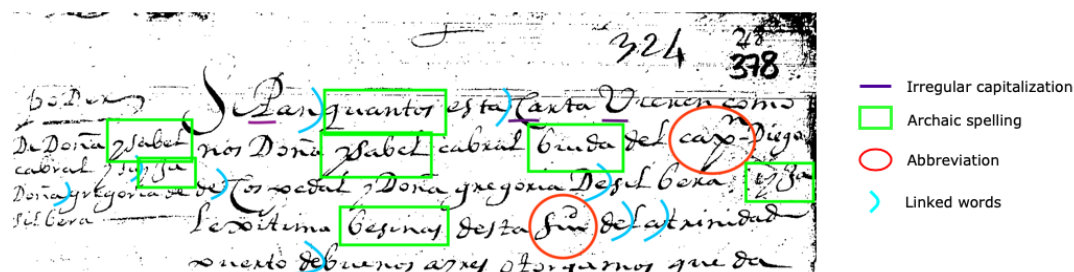 324 28
378
poder
De Doña ysabel
cabral y su yja
Doña gregoria de
silbera
SePan quantos esta Carta Vieren como
nos Doña ysabel cabral biuda del capn Diego
de Cospedal y Doña gregoria De silbera yja
Lexitima besinas desta ciud de la trinidad
puerto de buenos ayres otorgamos que da
Irregular capitalization
Archaic spelling
Abbreviation
Linked words